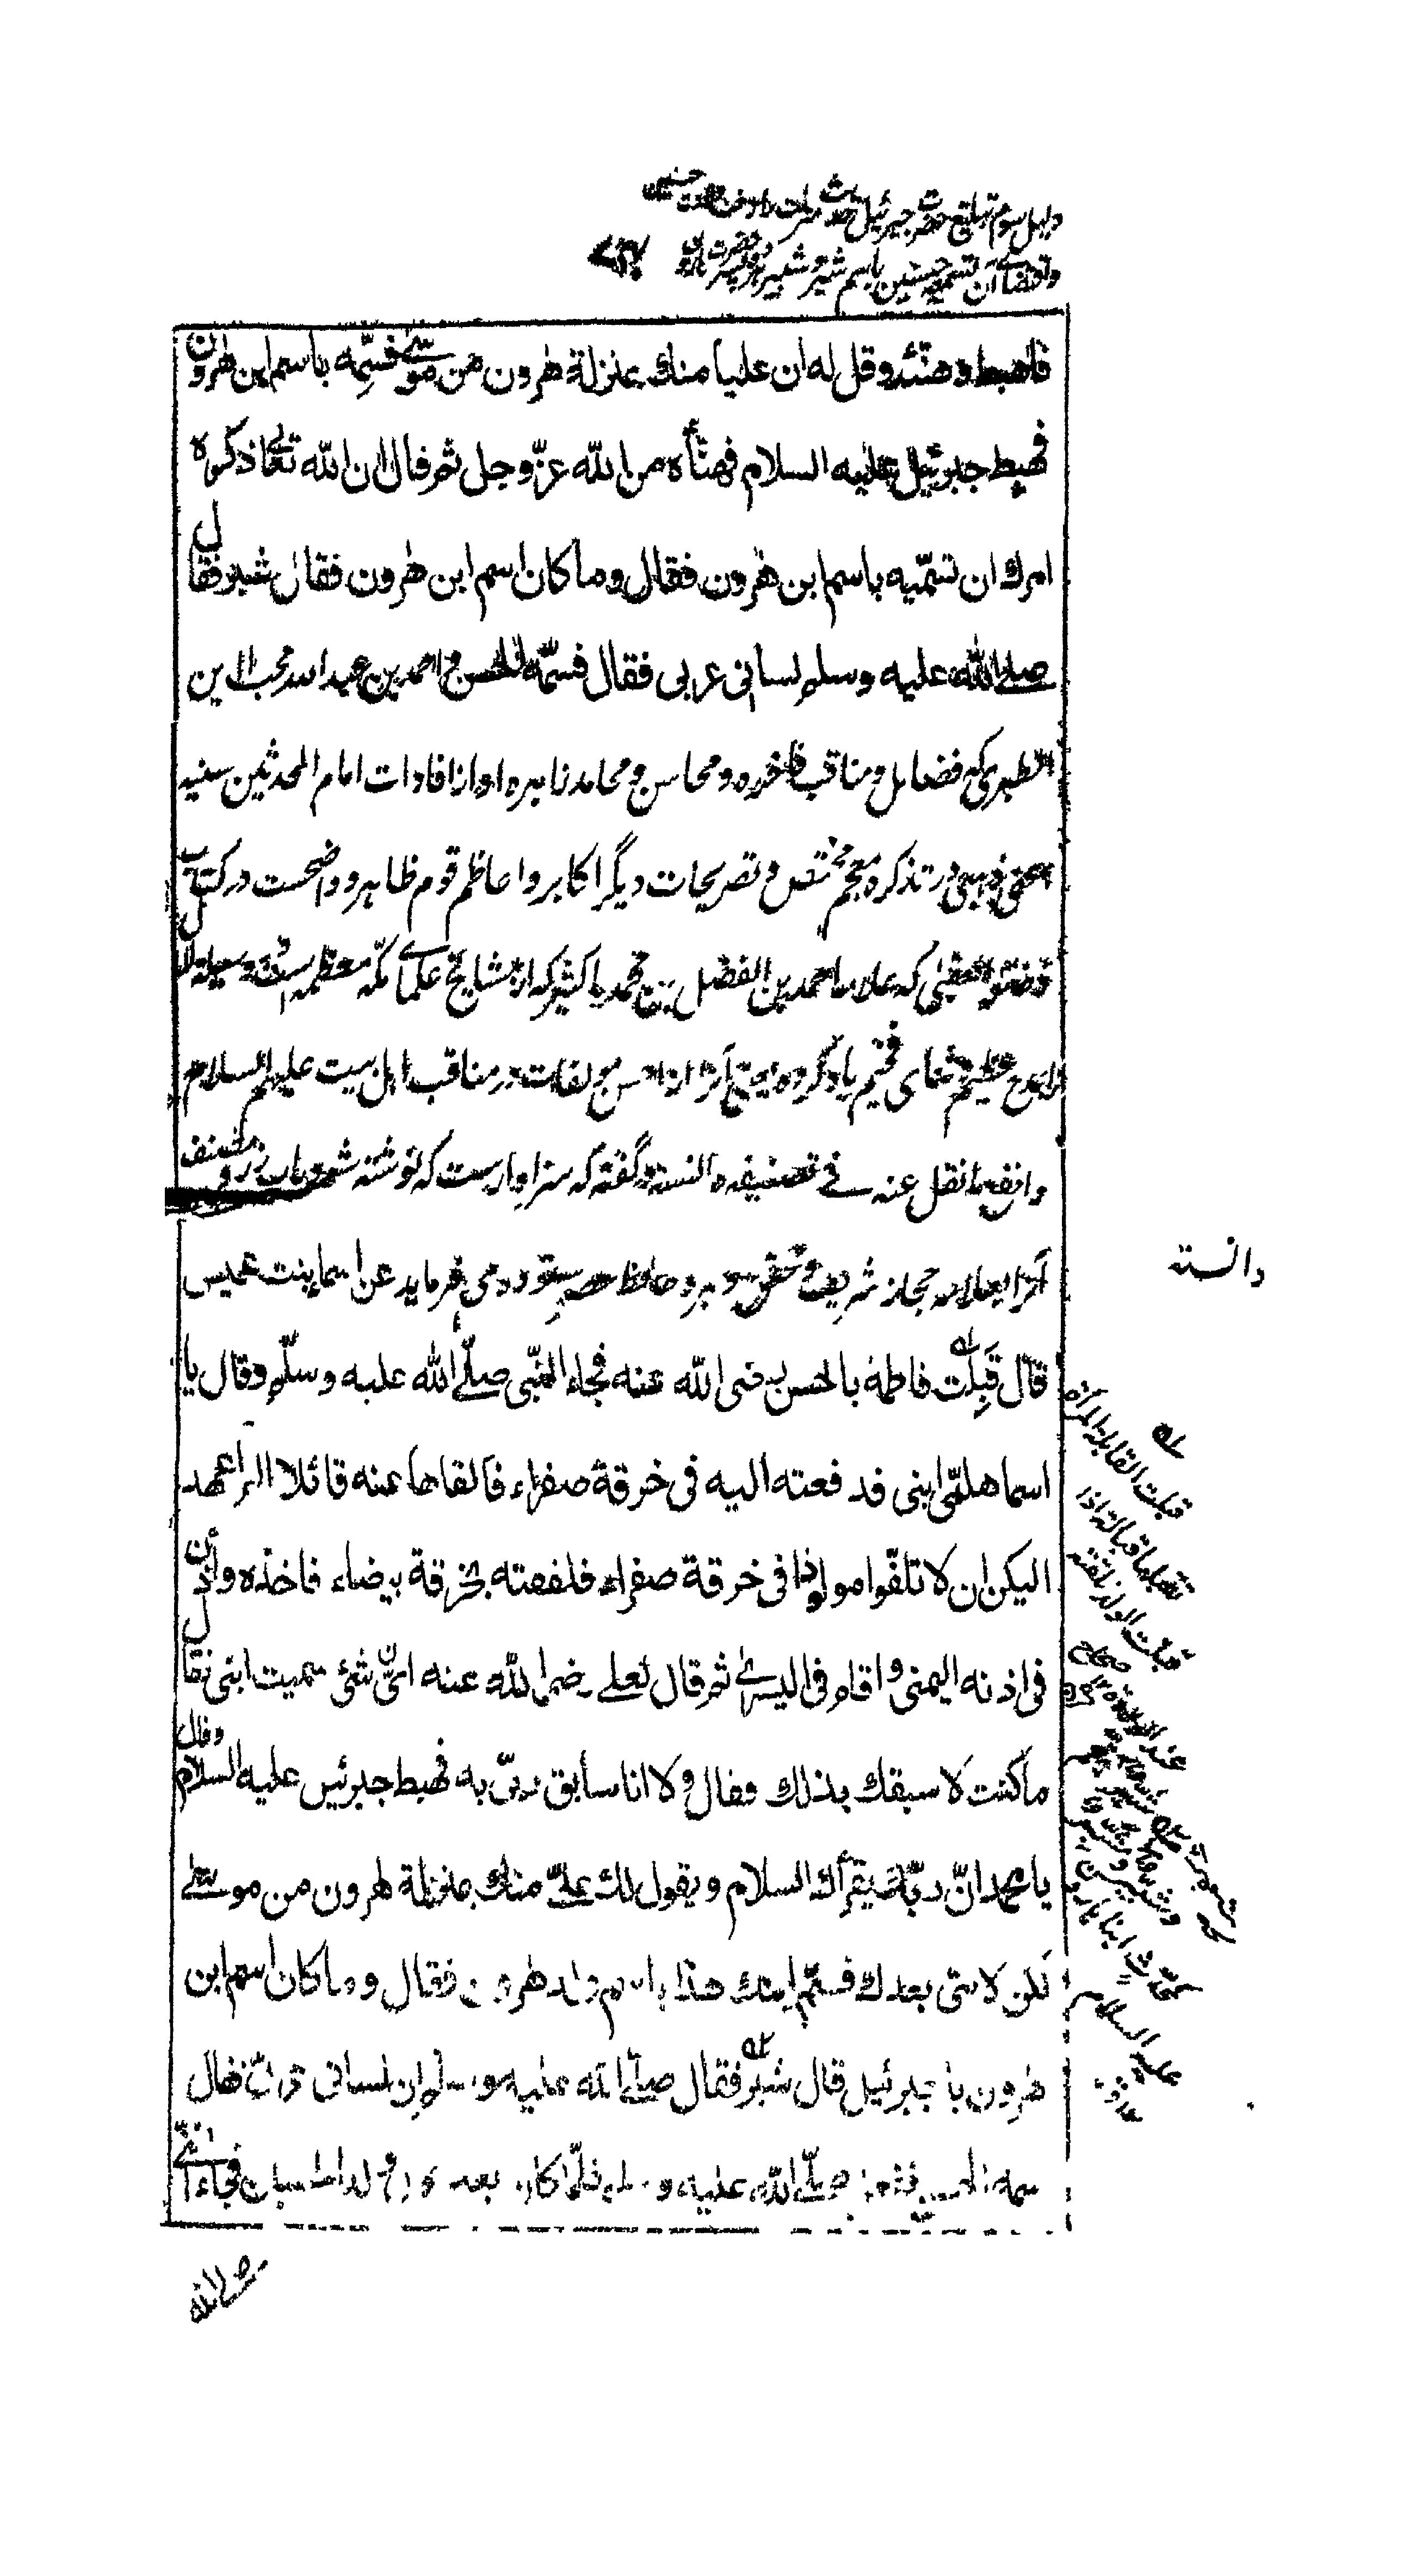 دلیل سوم تبلیغ حضرت جبرئیل حدیث منزلت را وقت ولادت حسنین
واقتضای آن تسمیه حسنین باسم شبر و شبیر دو پسر حضرت هارون
فاهبط وهنئه وقل له ان علیا منك بمنزلة هٰرون من موسٰے فسمّه باسم ابن هٰرون
فهبط جبرئیل علیه السلام فهنأه من الله عزّ وجل ثم قال ان الله تعالٰی ذكره
امرك ان تسمّیه باسم ابن هٰرون فقال وما كان اسم ابن هٰرون فقال شبر فقال
صلے الله علیه وسلم لسانی عربی فقال فسمّه الحسن و احمد بن عبد الله محب الدین
الطبری که فضایل و مناقب فاخره و محاسن و محامد زاهره او از افادات امام المحدثین سنیه
اعنی ذهبی در تذکره و معجم مختص و تصریحات دیگر اکابر و اعاظم قوم ظاهر و واضحست در کتاب
ذخائر العقبٰی که علامه احمد بن الفضل بن محمد باکثیر که از مشایخ علمای مکه معظمه است در وسیلة المآل
بمدح عظیم و ثنای فخیم یاد کرده یعنی آنرا از احسن مولفات در مناقب اهل بیت علیهم السلام
وانفع ما نقل عنه فے تصنیفه دانسته و گفته که سزاوار ست که نوشته شود بآب زر و مصنف
آنرا بعلامه حجاز شریف و محقق سو برو حافظ عصر ستوده می فرماید عن اسما بنت عمیس
قال قَبِلَت فاطمة بالحسن رضی الله عنه فجاء النبی صلّے الله علیه وسلّم وقال یا
اسما هلمّی ابنی فدفعته الیه فی خرقة صفراء فالقاها عنه قائلا الم اعهد
الیكن ان لا تلفّوا مولودا فی خرقة صفراء فلففته بخرقة بیضاء فاخذه واذن
فی اذنه الیمنی واقام فی الیسرٰے ثم قال لعلے رضی الله عنه ایّ شئ سمیت ابنی فقال
ما كنت لا سبقك بذلك فقال ولا انا سابق ربّی به فهبط جبرئیل علیه السلام وقال
یا محمد انّ ربّك یقرأك السلام ویقول لك علیّ منك بمنزلة هٰرون من موسٰے
لكن لا نبی بعدك فسمّ ابنك هذا باسم ولد هٰرون فقال وما كان اسم ابن
هٰرون یا جبرئیل قال شبّر فقال صلّے الله علیه وسلم ان لسانی عربیّ فقال
سمه الحسن ففعل صلّے الله علیه وسلم فلمّا كان بعد حول ولد الحسین فجاء النبے
دانسته
قبلت القابلة المرأة
تقبلها قبالة اذا
قبلت الولد تلقته
عند الولادة
صحاح
علیه السلام
صلے الله